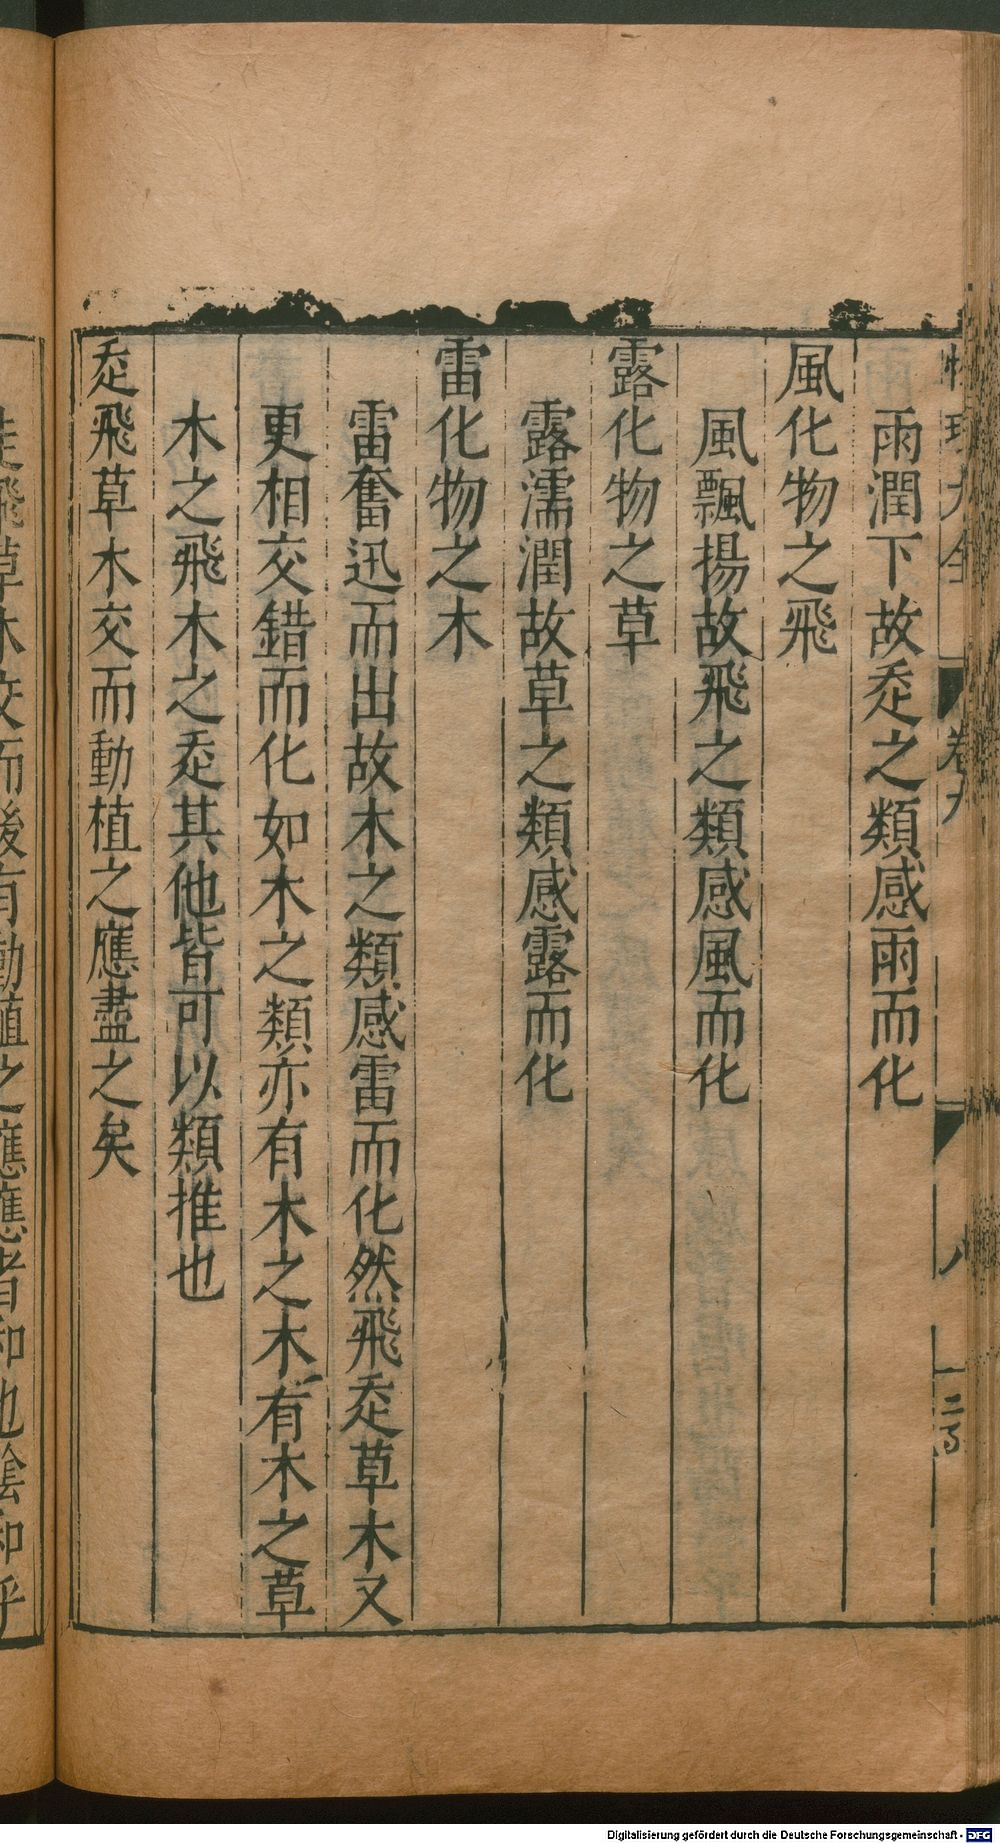 雨潤下故走之類感雨而化
風化物之飛
風飄揚故飛之類感風而化
露化物之草
露濡潤故草之類感露而化
雷化物之木
雷奮迅而出故木之類感雷而化然飛走草木又
更相交錯而化如木之類亦有木之木有木之草
木之飛木之走其他皆可以類推也
走飛草木交而動植之應盡之矣
卷九
八
走飛草木交而後有動植之應應者和也陰和乎
Digitalisierung gefördert durch die Deutsche Forschungsgemeinschaft - DFG